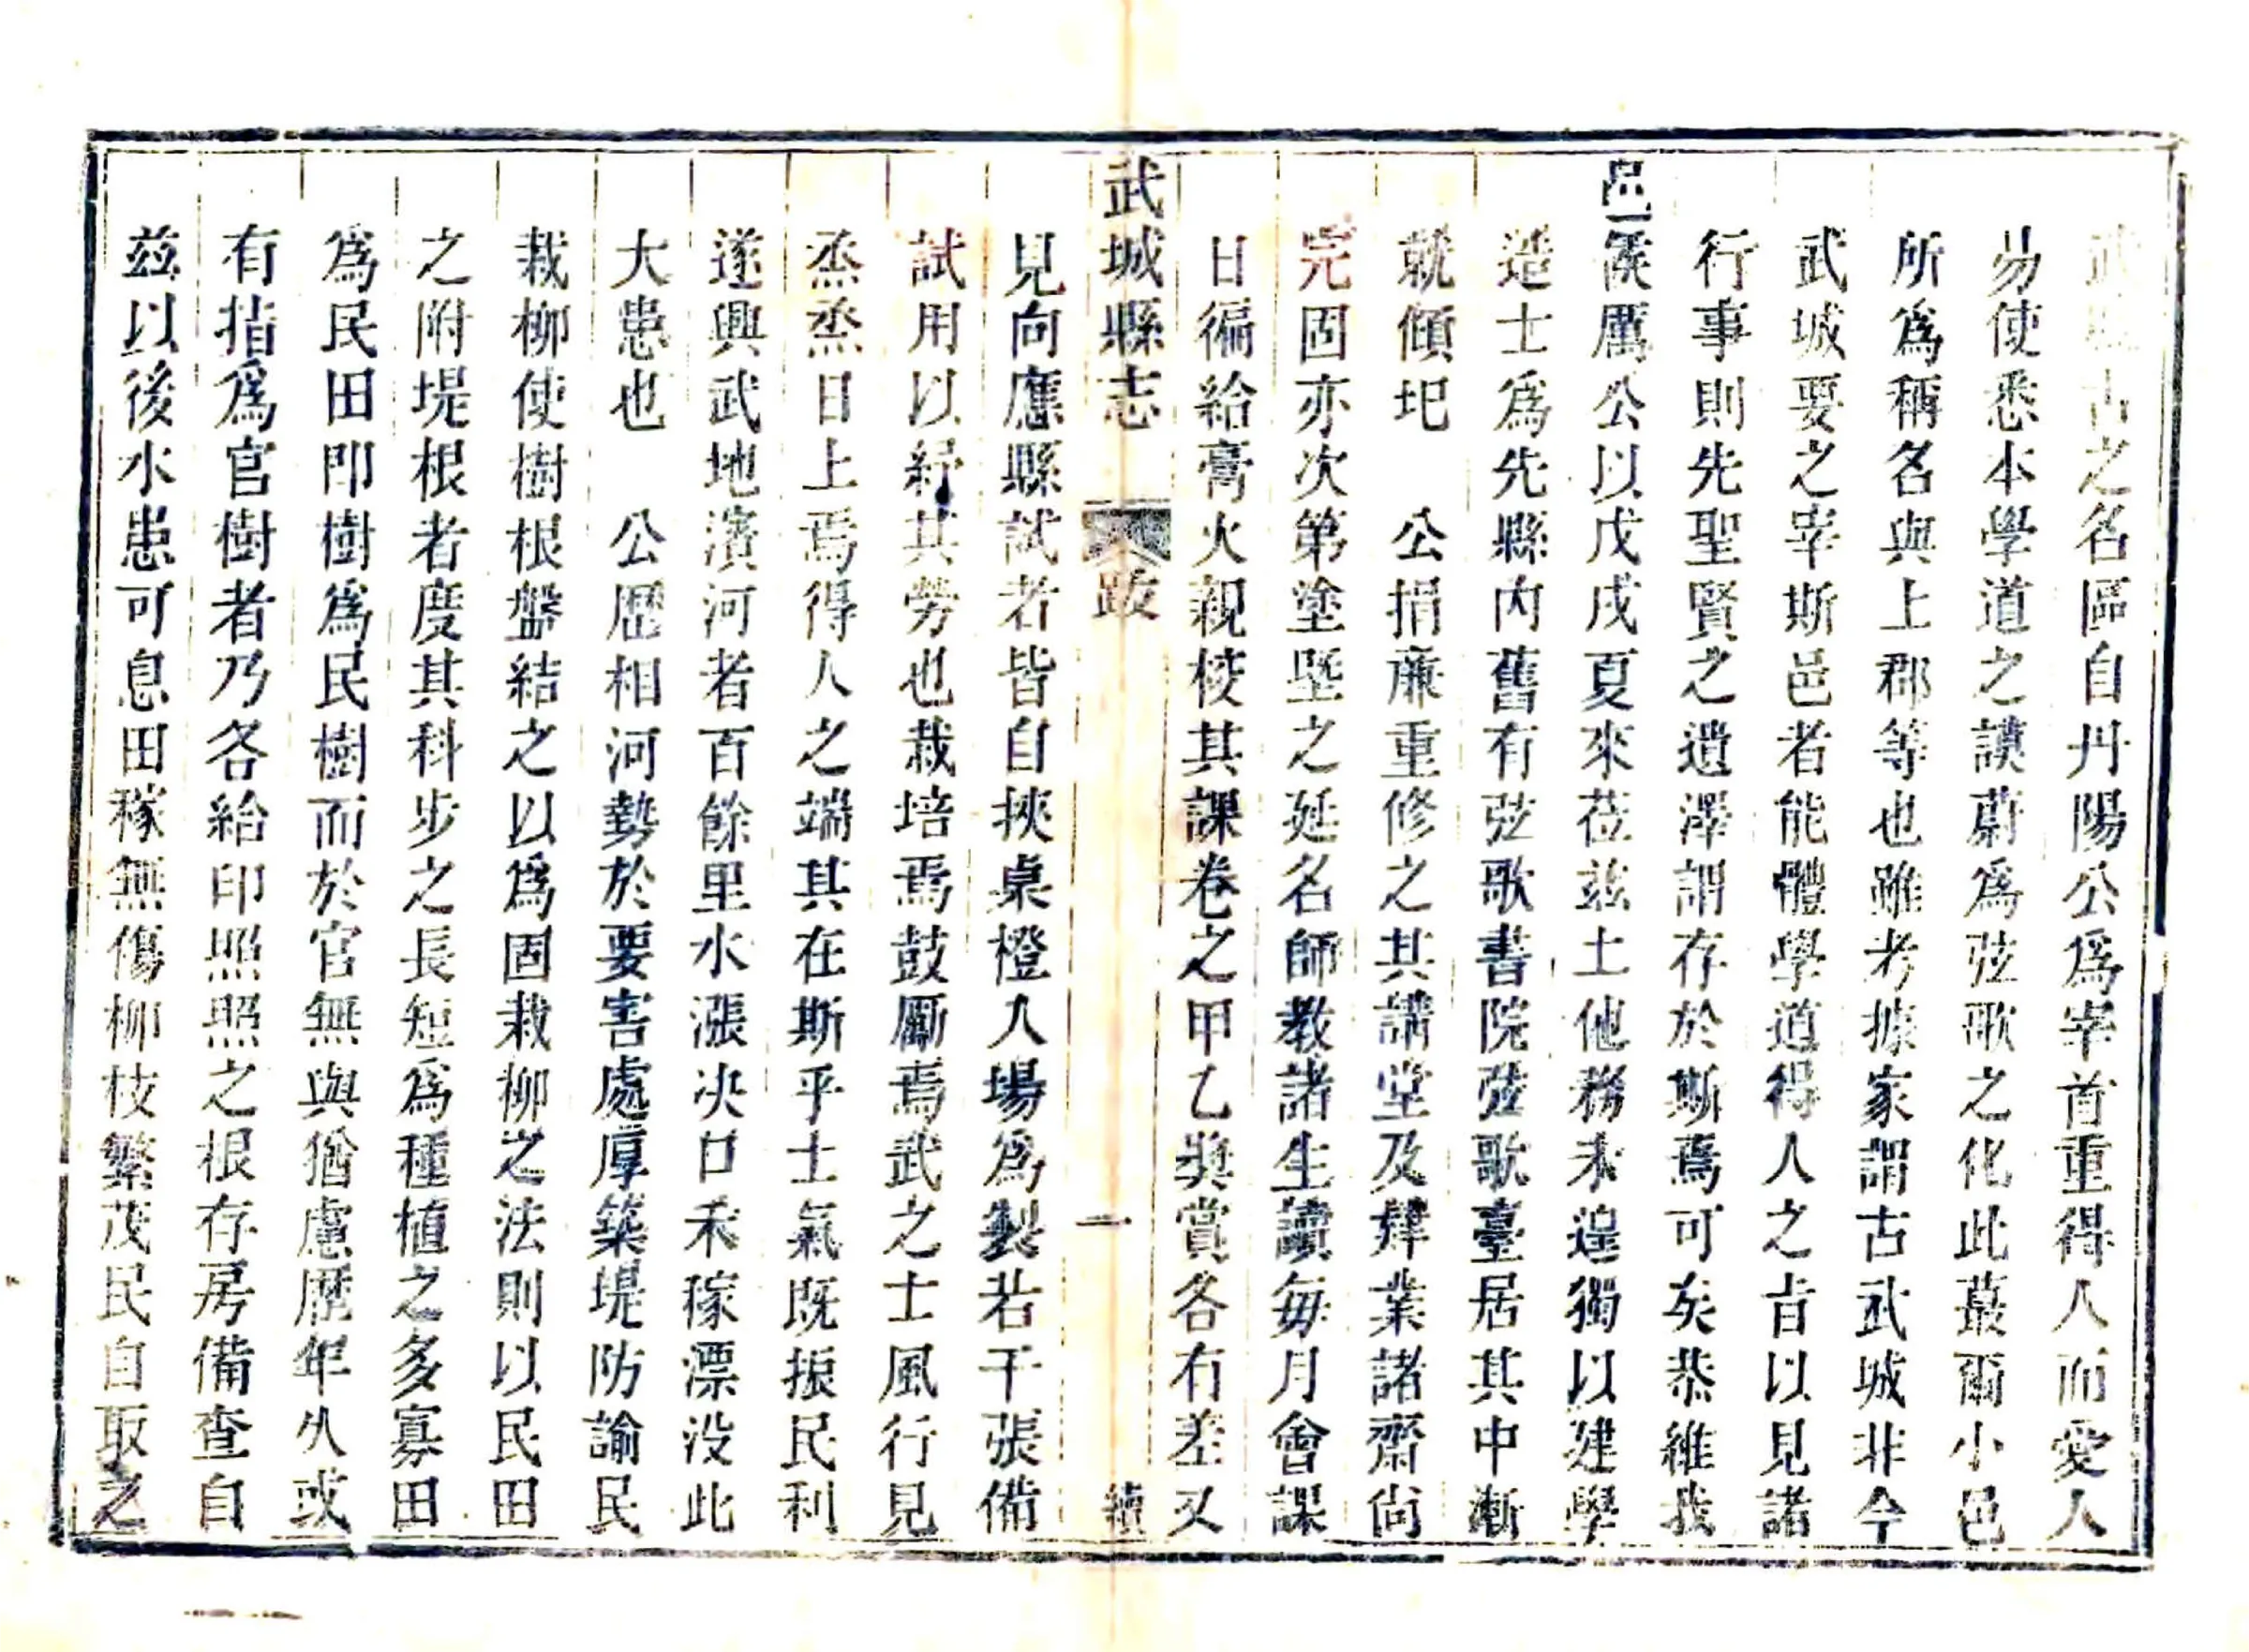 武城古之名區自丹陽公爲宰首重得人而愛人
易使悉本學道之謨蔚爲弦歌之化此蕞爾小邑
所爲稱名與上郡等也雖考據家謂古武城非今
武城要之宰斯邑者能體學道得人之㫖以見諸
行事則先聖賢之遺澤謂存於斯焉可矣恭維我
邑侯厲公以戊戌夏來莅兹土他務未遑獨以建學
造士爲先縣内舊有弦歌書院弦歌臺居其中漸
就傾圯　公捐廉重修之其講堂及肄業諸齋尙
完固亦次第塗塈之延名師教諸生讀每月會課
日徧給膏火親校其課卷之甲乙奬賞各有差又
武城縣志　跋　一　續
見向應縣試者皆自挾桌橙入場爲製若干張備
試用以紓其勞也栽培焉鼓勵焉武之士風行見
烝烝日上焉得人之端其在斯乎士氣既振民利
遂興武地濱河者百餘里水漲决口禾稼漂没此
大患也　公歴相河勢於要害處厚築堤防諭民
栽柳使樹根盤結之以爲固栽柳之法則以民田
之附堤根者度其科步之長短爲種植之多寡田
爲民田即樹爲民樹而於官無與猶慮歴年久或
有指爲官樹者乃各給印照照之根存房備查自
兹以後水患可息田稼無傷柳枝繁茂民自取之